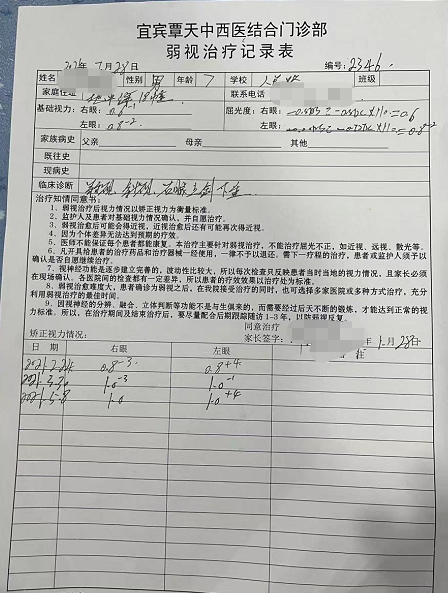 宜宾覃天中西医结合门诊部
弱视治疗记录表
月28日 编号:2346
姓名 性别 男 年龄 7 学校 班级
家庭住址 联系电话
基础视力:右眼:0.6 屈光度:右眼: =0.6
左眼:0.8-2 左眼: =0.8-2
家族病史 父亲 母亲 其他
既往史
现病史
临床诊断
治疗知情同意书:
1、弱视治疗后视力情况以矫正视力为衡量标准。
2、监护人及患者对基础视力情况确认,并自愿治疗。
3、弱视治愈后可能会得近视,近视治愈后还有可能再次得近视。
4、因为个体差异无法达到预期的疗效。
5、医师不能保证每个患者都能康复。本治疗主要针对弱视治疗,不能治疗屈光不正,如近视、远视、散光等。
6、凡开具给患者的治疗药品和治疗器械一经使用,一律不予以退还。需下一疗程的治疗,患者或监护人须予以
确认是否自愿继续治疗。
7、视神经功能是逐步建立完善的,波动性比较大,所以每次检查只反映患者当时当地的视力情况,且家长必须
在现场确认。各医院间的检查都有一定差异,所以患者的疗效效果以治疗处为标准。
8、弱视治愈难度大,患者确诊为弱视之后,在我院接受治疗的同时,也可选择多家医院或多种方式治疗,充分
利用弱视治疗的最佳时间。
9、因视神经的分辨、融合、立体判断等功能不是与生俱来的,而需要经过后天不断的锻炼,才能达到正常的视
力标准。所以,在治疗期间及结束治疗后,要尽量配合后期跟踪随访1-3年,以防弱视反复。
同意治疗
矫正视力情况: 家长签字: 年1月28日
日 期 右眼 左眼 注
2021-2-24 0.8-3 0.8+4
2021-3-30 1.0-3 1.0-1
2021-5-8 1.0 1.0+4